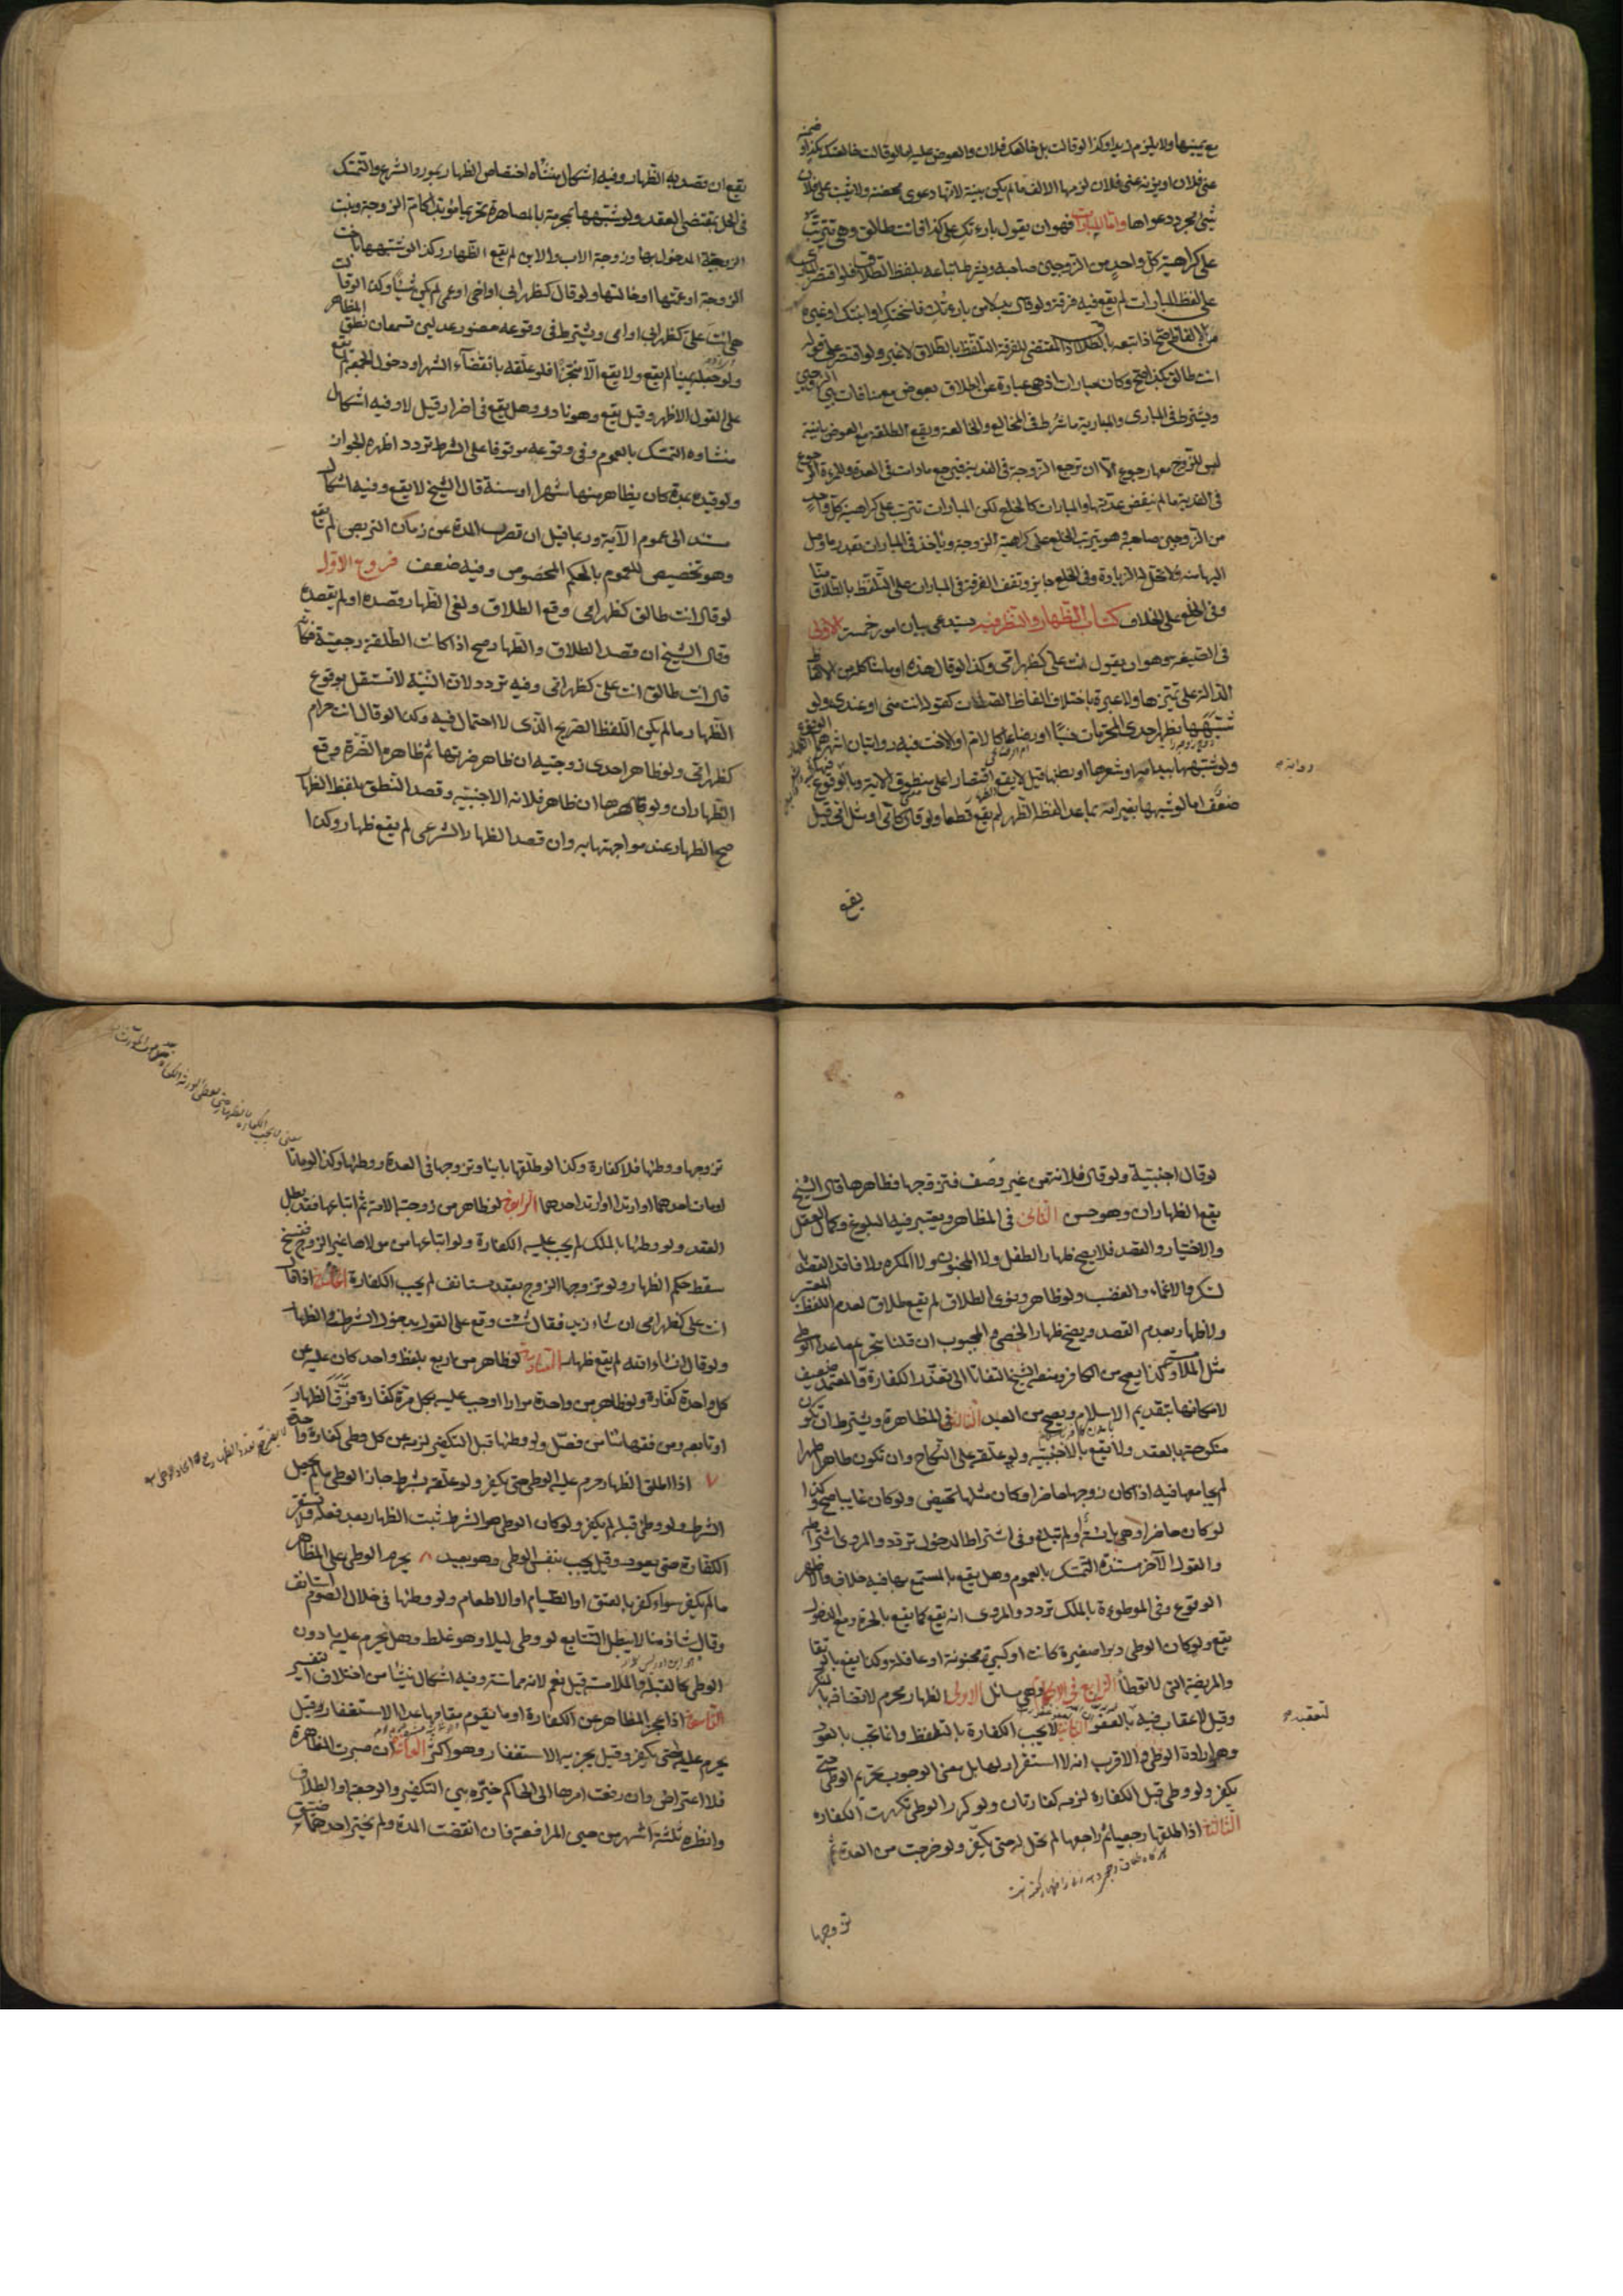 مع يمينها ولا يلزم زيدا وكذا لو قالت بل خالعك فلان والعوض عليه اما لو قالت خالعتك بكذا وضمنه
عني فلان او يزنه عني فلان لزمها الالف ما لم يكن بينة لانها دعوى محضة ولا يثبت على فلان
شئ بمجرد دعواها واما المبارات فهو ان يقول بارءتك على كذا فانت طالق وهي تترتب
على كراهية كل واحد من الزوجين صاحبه ويشترط اتباعه بلفظ الطلاق فلو اقتصر
على لفظ المبارات لم يقع فيه فرقة ولو قال بدلا من بارءتك فاسختك او ابنتك او غيره
من الالفاظ صح اذا اتبعه بالطلاق اذ المقتضى للفرقة التلفظ بالطلاق لا غير ولو اقتصر على قوله
انت طالق بكذا صح وكان مبارات اذ هي عبارة عن الطلاق بعوض مع منافات بين الزوجين
ويشترط في المباري والمبارية ما شرط في المخالع والمخالعة ويقع الطلقة مع العوض باينة
ليس للزوج معها رجوع الا ان ترجع الزوجة في الفدية فيرجع ما دامت في العدة وللمرءة الرجوع
في الفدية ما لم ينقض عدتها والمبارات كالخلع لكن المبارات تترتب على كراهية كل واحد
من الزوجين صاحبه وهو يترتب الخلع على كراهية الزوجة وياخذ في المبارات بقدر ما وصل
اليها منه ولا تحل له الزيادة وفي الخلع جايز وتقف الفرقة في المبارات على التلفظ بالطلاق منا
وفي الخلع على الخلاف كتاب الظهار والنظر فيه يستدعي بيان امور خمسة الاول
في الصيغة وهو ان يقول انت علي كظهر امي وكذا لو قال هذه او ما شاكله من الالفاظ
الدالة على تميزها ولا عبرة باختلاف الفاظ الصلات كقوله انت مني او عندي ولو
شبهها بظهر احدى المحرمات نسبا او رضاعا كالام او الاخت فيه روايتان اشهرهما الوقوع
ولو شبهها بيد امه او شعرها او بطنها قيل لا يقع اقتصارا على منطوق الاية وبالوقوع
ضعف اما لو شبهها بغير امه بما عدا لفظ الظهر لم يقع قطعا ولو قال كامي او مثل امي قيل
رواية
يقع
يقع ان قصد به الظهار وفيه اشكال منشأه اختصاص الظهار بمورد الشرع والتمسك
في الحل بمقتضى العقد ولو شبهها بمحرمة بالمصاهرة تحريما مؤبدا كام الزوجة وبنت
الزوجة المدخول بها وزوجة الاب والابن لم يقع الظهار وكذا لو شبهها باخت
الزوجة او عمتها او خالتها ولو قال كظهر ابي او اخي او عمي لم يكن شيئا وكذا لو قالت
هي انت علي كظهر ابي او امي ويشترط في وقوعه حضور عدلين تسمعان نطق المظاهر
ولو جعله يمينا لم يقع ولا يقع الا منجزا فلو علقه بانقضاء الشهر او دخول الجمعة لم يقع
على القول الاظهر وقيل يقع وهو نادر وهل يقع في اضرار قيل لا وفيه اشكال
منشاوه التمسك بالعموم وفي وقوعه موقوفا على الشرط تردد اظهره الجواز
ولو قيده بمدة كان يظاهر منها شهرا او سنة قال الشيخ لا يقع وفيه اشكال
مستند الى عموم الآية وربما قيل ان قصرت المدة عن زمان التربص لم يقع
وهو تخصيص للعموم بالحكم المخصوص وفيه ضعف فروع الاول
لو قال انت طالق كظهر امي وقع الطلاق ولغى الظهار قصده او لم يقصده
وقال الشيخ ان قصد الطلاق والظهار صح اذا كانت الطلقة رجعية فكانه
قال انت طالق انت علي كظهر امي وفيه تردد لان النية لا تستقل بوقوع
الظهار ما لم يكن اللفظ الصريح الذي لا احتمال فيه وكذا لو قال انت حرام
كظهر امي ولو ظاهر احدى زوجتيه ان ظاهر ضرتها ثم ظاهر الضرة وقع
الظهاران ولو ظاهرها ان ظاهر فلانه الاجنبية وقصد النطق بلفظ الظهار
صح الظهار عند مواجهتها به وان قصد الظهار الشرعي لم يقع ظهار وكذا
لو قال اجنبية ولو قال فلانة من غير وصف فتزوجها فظاهرها قال الشيخ
يقع الظهاران وهو حسن الثاني في المظاهر ويعتبر فيه البلوغ وكمال العقل
والاختيار والقصد فلا يصح ظهار الطفل ولا المجنون ولا المكره ولا فاقد القصد
لسكر والاغماء والغضب ولو ظاهر ونوى الطلاق لم يقع طلاق لعدم اللفظ المعتبر
ولا ظهار لعدم القصد ويصح ظهار الخصي والمجبوب ان قلنا بتحريم ما عدا الوطئ
مثل الملامسة وكذا يصح من الكافر ومنعه الشيخ التفاتا الى تعذر الكفارة والمعتمد ضعيف
لامكانها بتقديم الاسلام ويصح من العبد الثالث في المظاهرة ويشترط ان تكون
منكوحة بالعقد ولا يقع بالاجنبية ولو علقه على النكاح وان تكون طاهرا طهرا
لم يجامعها فيه اذا كان زوجها حاضرا وكان مثلها تحيض ولو كان غايبا صح وكذا
لو كان حاضرا وهي يائسة او لم تبلغ وفي اشتراط الدخول تردد والمروي اشتراطه
والقول الآخر مستنده التمسك بالعموم وهل يقع بالمستمتع بها فيه خلاف والاظهر
الوقوع وفي الموطوءة بالملك تردد والمروي انه يقع كما يقع بالحرة ومع الدخول
يقع ولو كان الوطي دبرا صغيرة كانت او كبيرة مجنونة او عاقلة وكذا يقع بالرتقا
والمريضة التي لا توطأ الرابع في الاحكام وهي مسائل الاولى الظهار محرم لاتصافه بالمنكر
وقيل لا عقاب فيه لتعقبه بالعفو الثانية لا يجب الكفارة بالتلفظ وانما تجب بالعود
وهو ارادة الوطي والاقرب انه لا استقرار لها بل معنى الوجوب تحريم الوطي حتى
يكفر ولو وطئ قبل الكفارة لزمه كفارتان ولو كرر الوطي تكررت الكفارة
الثالثة اذا طلقها رجعيا ثم راجعها لم تحل له حتى يكفر ولو خرجت من العدة ثم
تزوجها
تزوجها ووطئها فلا كفارة وكذا لو طلقها باينا وتزوجها في العدة ووطئها وكذا لو ماتا
او مات احدهما او ارتدا او ارتد احدهما الرابعة لو ظاهر من زوجته الامة ثم ابتاعها فقد بطل
العقد ولو وطئها بالملك لم يجب عليه الكفارة ولو ابتاعها من مولاها غير الزوج ففسخ
سقط حكم الظهار ولو تزوجها الزوج بعقد مستانف لم يجب الكفارة الخامسة اذا قال
انت علي كظهر امي ان شاء زيد فقال شئت وقع على القول بدخول الشرط في الظهار
ولو قال ان شاء الله لم يقع ظهار السادسة لو ظاهر من اربع بلفظ واحد كان عليه عن
كل واحدة كفارة ولو ظاهر من واحدة مرارا وجب عليه بكل مرة كفارة فرق الظهار
او تابعه ومن فقهائنا من فصل ولو وطئها قبل التكفير لزمه عن كل وطي كفارة واحدة
٧ اذا اطلق الظهار حرم عليه الوطي حتى يكفر ولو علقه بشرط جاز الوطي ما لم يحصل
الشرط ولو وطئ قبله لم يكفر ولو كان الوطي هو الشرط ثبت الظهار بعد فعله ولا تستقر
الكفارة حتى يعود وقيل يجب بنفس الوطي وهو بعيد ٨ يحرم الوطي على المظاهر
ما لم يكفر سواء كفر بالعتق او الصيام او الاطعام ولو وطئها في خلال الصوم استانف
وقال شاذ منا لا يبطل التتابع لو وطئ ليلا وهو غلط وهل يحرم عليه ما دون
الوطي كالقبلة والملامسة قيل نعم لانه مماسة وفيه اشكال ينشأ من اختلاف التفسير
التاسعة اذا عجز المظاهر عن الكفارة او ما يقوم مقامها عدا الاستغفار قيل
يحرم عليه حتى يكفر وقيل يجزيه الاستغفار وهو اكثر العاشرة ان صبرت المظاهرة
فلا اعتراض وان رفعت امرها الى الحاكم خيره بين التكفير والرجعة او الطلاق
وانظره ثلثة اشهر من حين المرافعة فان انقضت المدة ولم يختر احدهما ضيق